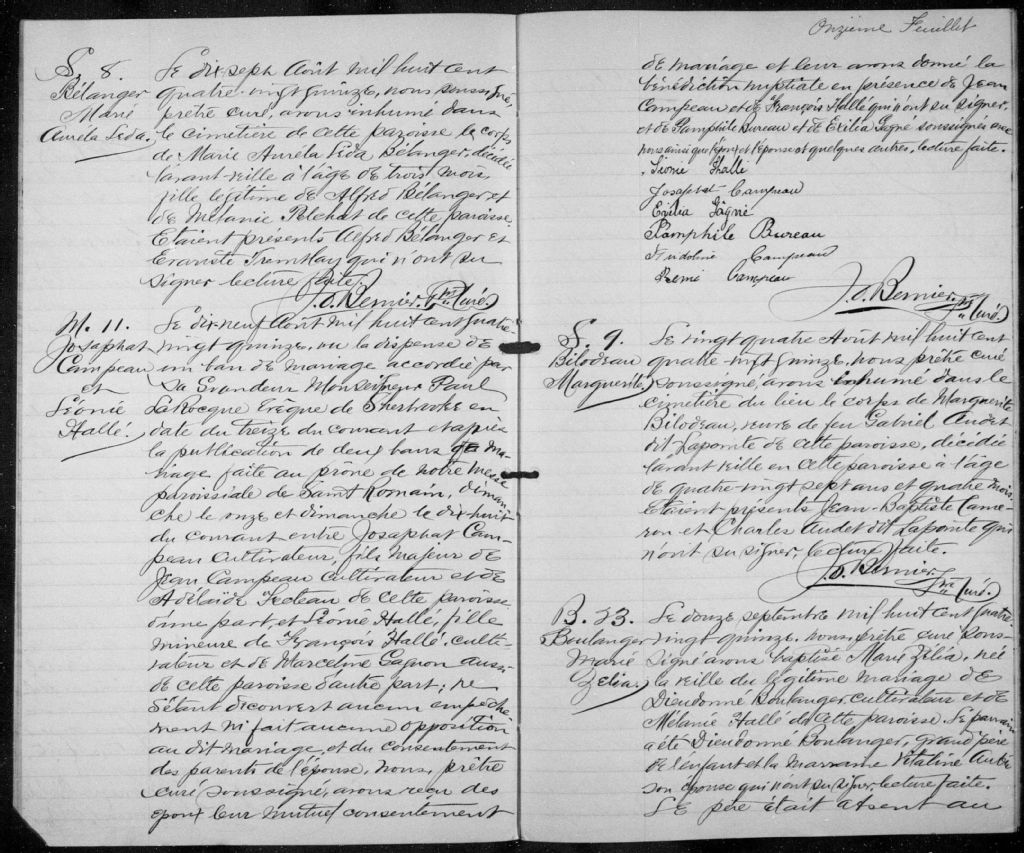 S. 8.
Bélanger
Marie
Auréla Léda.
Le dix sept Août mil huit cent
quatre-vingt quinze, nous soussigné,
prêtre curé, avons inhumé dans
le cimetière de cette paroisse le corps
de Marie Auréla Léda Bélanger, décédée
l'avant-veille à l'âge de trois mois,
fille légitime de Alfred Bélanger et
de Mélanie Pelchat de cette paroisse.
Etaient présents Alfred Bélanger et
Evariste Tremblay qui n'ont su
signer lecture faite.
J. O. Bernier. Ptre Curé.
M. 11.
Josaphat
Campeau
et
Léonie
Hallé.
Le dix-neuf Août mil huit cent quatre
vingt quinze, vu la dispense de
un ban de mariage accordée par
Sa Grandeur Monseigneur Paul
LaRocque Evêque de Sherbrooke en
date du treize du courant et après
la publication de deux bans de ma-
riage faite au prône de notre messe
paroissiale de Saint Romain, diman
che le onze et dimanche le dix-huit
du courant entre Josaphat Cam-
peau cultivateur, fils majeur de
Jean Campeau cultivateur et de
Adélaïde Fecteau de cette paroisse
d'une part, et Léonie Hallé, fille
mineure de François Hallé culti-
vateur et de Marceline Gagnon aussi
de cette paroisse d'autre part; ne
s'étant découvert aucun empêche-
ment ni fait aucune opposition
au dit mariage, et du consentement
des parents de l'épouse, nous, prêtre
curé soussigné, avons reçu des
époux leur mutuel consentement
Onzième Feuillet
de mariage et leur avons donné la
bénédiction nuptiale en présence de Jean
Campeau et de François Hallé qui n'ont su signer,
et de Pamphile Bureau et de Exilia Gagné soussignés avec
nous ainsi que l'époux et l'épouse et quelques autres, lecture faite.
Léonie Hallé
Josaphat Campeau
Exilia Gagné
Pamphile Bureau
Campeau
Rémé Campeau
J. O. Bernier. Ptre Curé.
S. 9.
Bilodeau
Marguerite
Le vingt quatre Août mil huit cent
quatre-vingt quinze, nous prêtre curé
soussigné, avons inhumé dans le
cimetière du lieu le corps de Marguerite
Bilodeau, veuve de feu Gabriel Audet
dit Lapointe de cette paroisse, décédée
l'avant veille en cette paroisse à l'âge
de quatre-vingt sept ans et quatre mois.
Etaient présents Jean-Baptiste Came-
ron et Charles Audet dit Lapointe qui
n'ont su signer, lecture faite.
J. O. Bernier. Ptre Curé.
B. 33.
Boulanger
Marie
Zélia.
Le douze septembre mil huit cent quatre
vingt quinze, nous, prêtre curé sous-
signé avons baptisé Marie Zélia, née
la veille du légitime mariage de
Dieudonné Boulanger cultivateur et de
Mélanie Hallé de cette paroisse. Le parrain
a été Dieudonné Boulanger, grand père
de l'enfant et la marraine Vitaline Aubé
son épouse qui n'ont su signer, lecture faite.
Le père était absent au